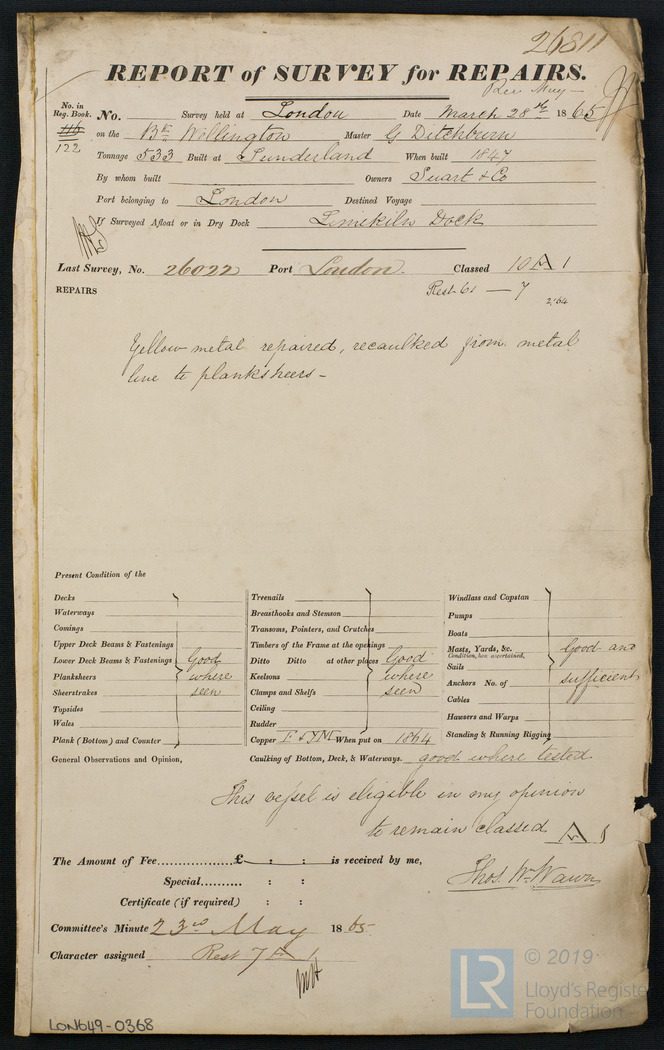 26811
REPORT of SURVEY for REPAIRS.
Rec May —
No. in Reg. Book. No. Survey held at London Date March 28th 1865
116 on the Bk Wellington Master G Ditchburn
122 Tonnage 533 Built at Sunderland When built 1847
By whom built Owners Suart & Co
Port belonging to London Destined Voyage
If Surveyed Afloat or in Dry Dock Limekiln Dock
Last Survey, No. 26022 Port London. Classed 10 A 1
REPAIRS Rest 61 — 7 2,64
Yellow metal repaired, recaulked from metal
line to planksheers —
Present Condition of the
Decks Treenails Windlass and Capstan
Waterways Breasthooks and Stemson Pumps
Comings Transoms, Pointers, and Crutches Boats
Upper Deck Beams & Fastenings Timbers of the Frame at the openings Masts, Yards, &c. Good and
Condition, how ascertained.
Lower Deck Beams & Fastenings Good Ditto Ditto at other places Good Sails
Planksheers where Keelsons where Anchors No. of sufficient
Sheerstrakes seen Clamps and Shelfs seen Cables
Topsides Ceiling Hawsers and Warps
Wales Rudder Standing & Running Rigging
Plank (Bottom) and Counter Copper F & YM When put on 1864
General Observations and Opinion, Caulking of Bottom, Deck, & Waterways. good where tested
This vessel is eligible in my opinion
to remain classed A 1
The Amount of Fee..................£ : : is received by me,
Special.......... : : Thos. Wm Wawn
Certificate (if required) : :
Committee's Minute 23rd May 1865
Character assigned Rest 7 A 1
LON649-0368
LR
© 2019
Lloyd's Register
Foundation